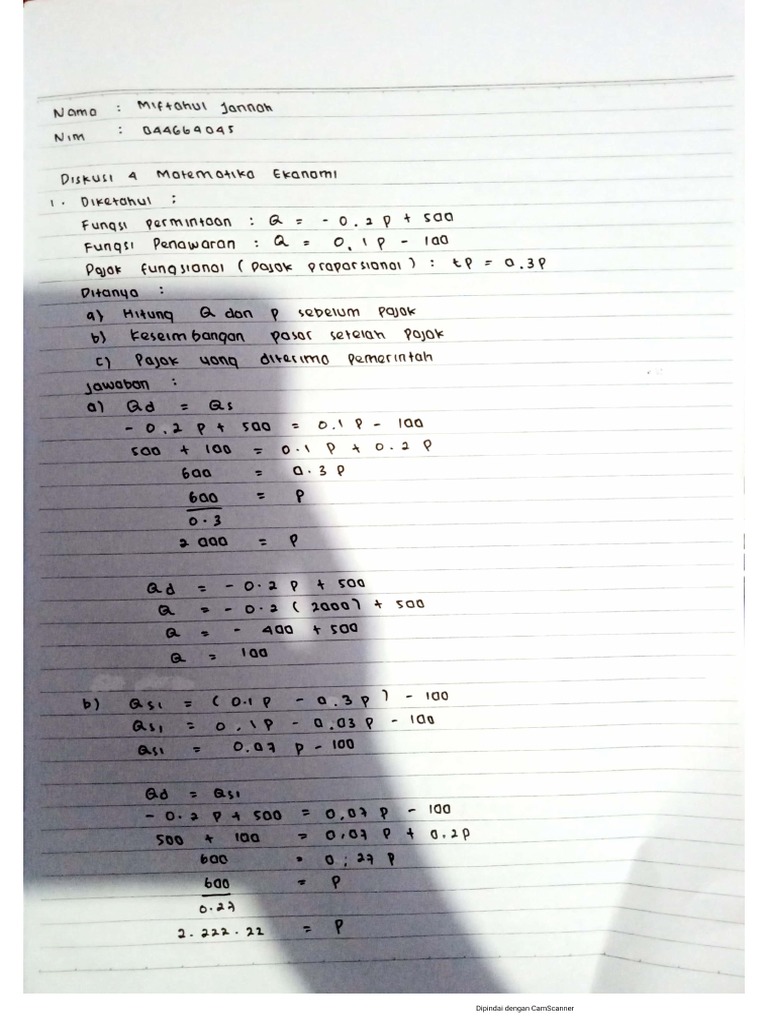 Nama : Miftahul Jannah
Nim : 044664045
Diskusi 4 Matematika Ekonomi
1. Diketahui :
Fungsi permintaan : Q = - 0.2 P + 500
Fungsi Penawaran : Q = 0,1 P - 100
Pajak fungsional (Pajak proporsional) : tP = 0.3P
Ditanya :
a) Hitung Q dan P sebelum Pajak
b) Keseimbangan pasar setelah Pajak
c) Pajak yang diterima Pemerintah
Jawaban :
a) Qd = Qs
- 0.2 P + 500 = 0.1 P - 100
500 + 100 = 0.1 P + 0.2 P
600 = 0.3 P
600 = P
0.3
2 000 = P
Qd = - 0.2 P + 500
Q = - 0.2 ( 2000) + 500
Q = - 400 + 500
Q = 100
b) Qs1 = ( 0.1 P - 0.3 P ) - 100
Qs1 = 0,1P - 0,03 P - 100
Qs1 = 0.07 P - 100
Qd = Qs1
- 0.2 P + 500 = 0,07 P - 100
500 + 100 = 0,07 P + 0,2P
600 = 0,27 P
600 = P
0.27
2.222.22 = P
Dipindai dengan CamScanner